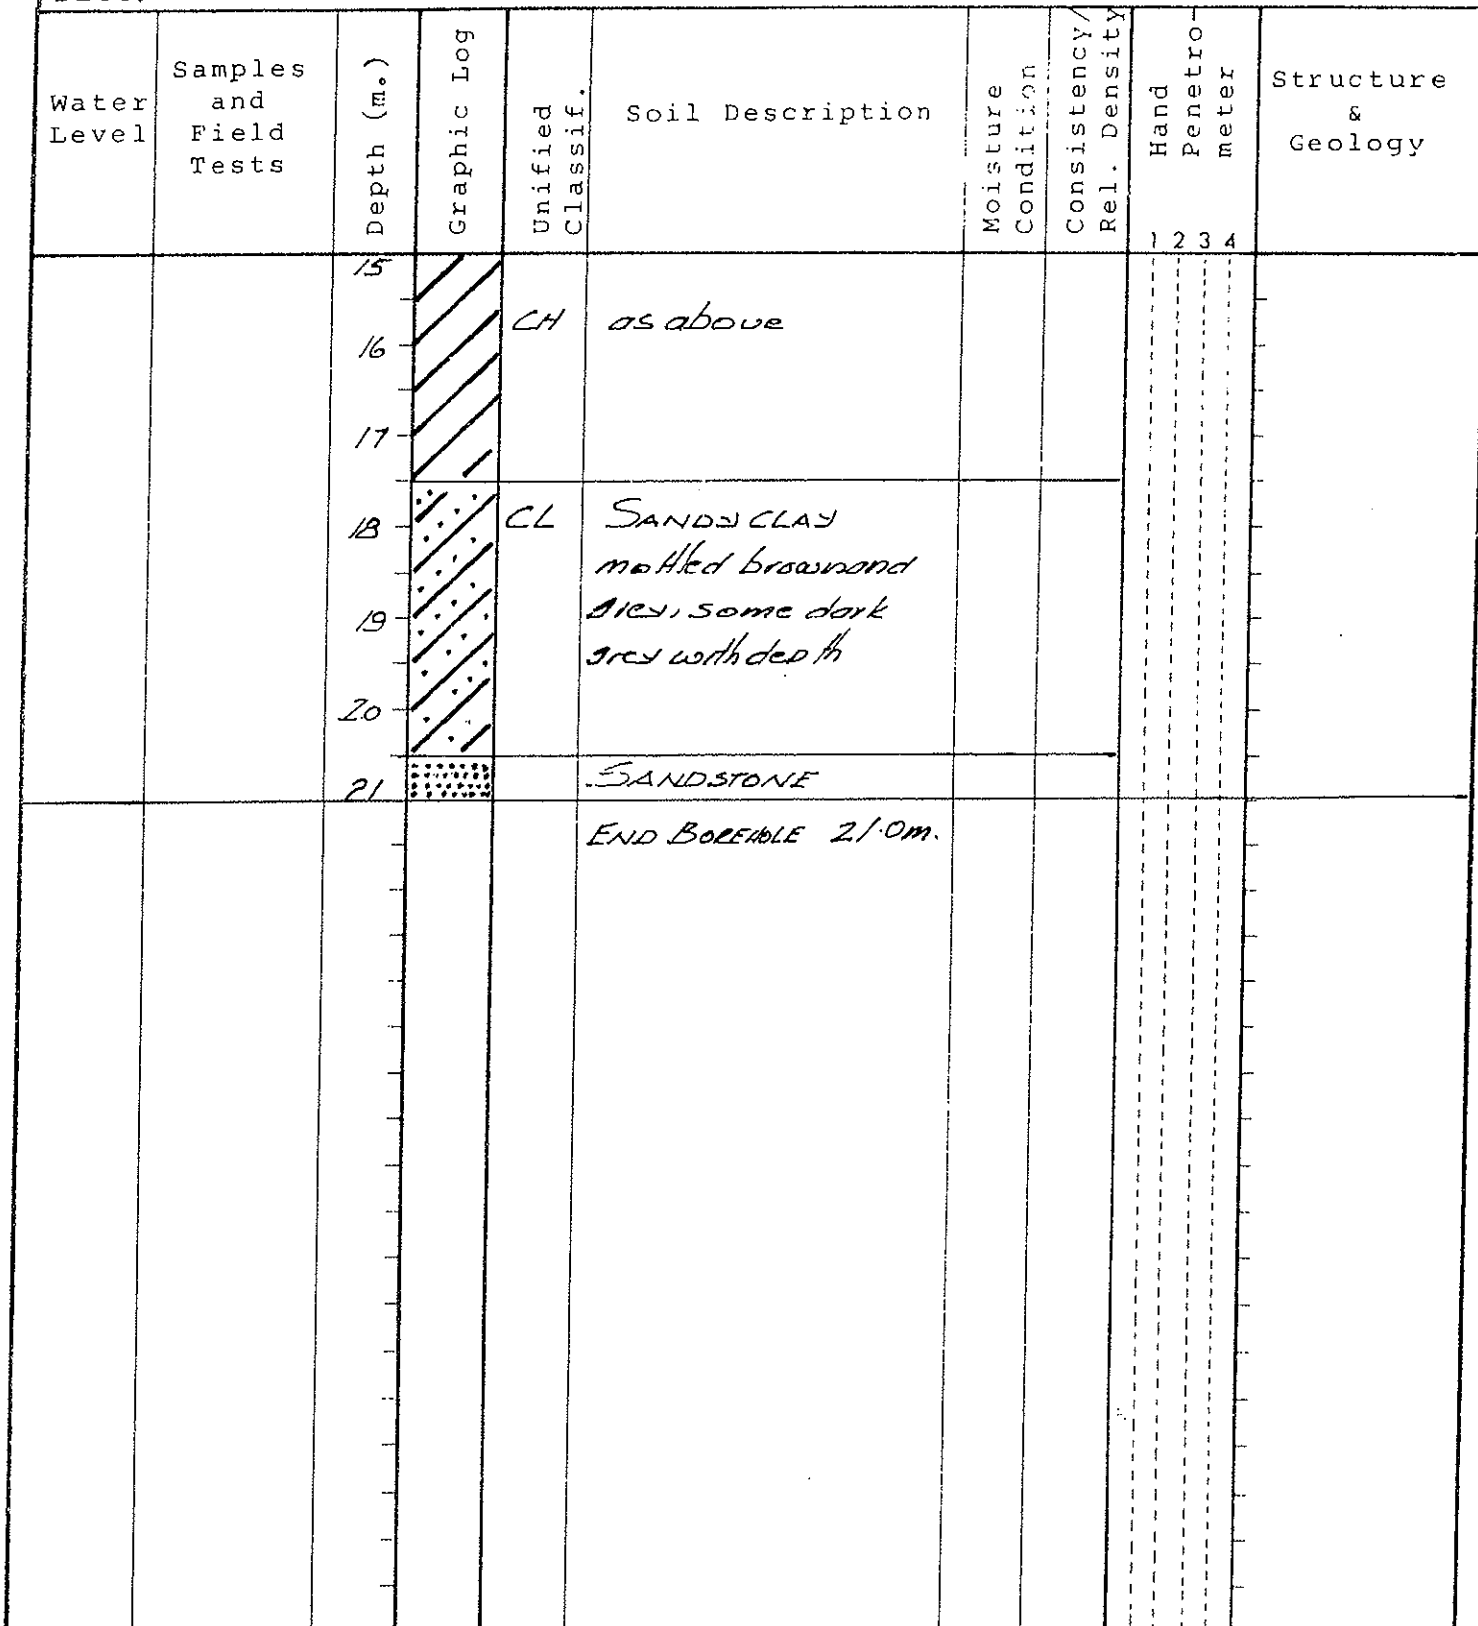 Water
Level
Samples
and
Field
Tests
Depth (m.)
Graphic Log
Unified
Classif.
Soil Description
Moisture
Condition
Consistency/
Rel. Density
Hand
Penetro-
meter
1 2 3 4
Structure
&
Geology
15
CH as above
16
17
18
CL SANDY CLAY
mottled brown and
grey, some dark
19
grey with depth
20
SANDSTONE
21
END BOREHOLE 21.0m.